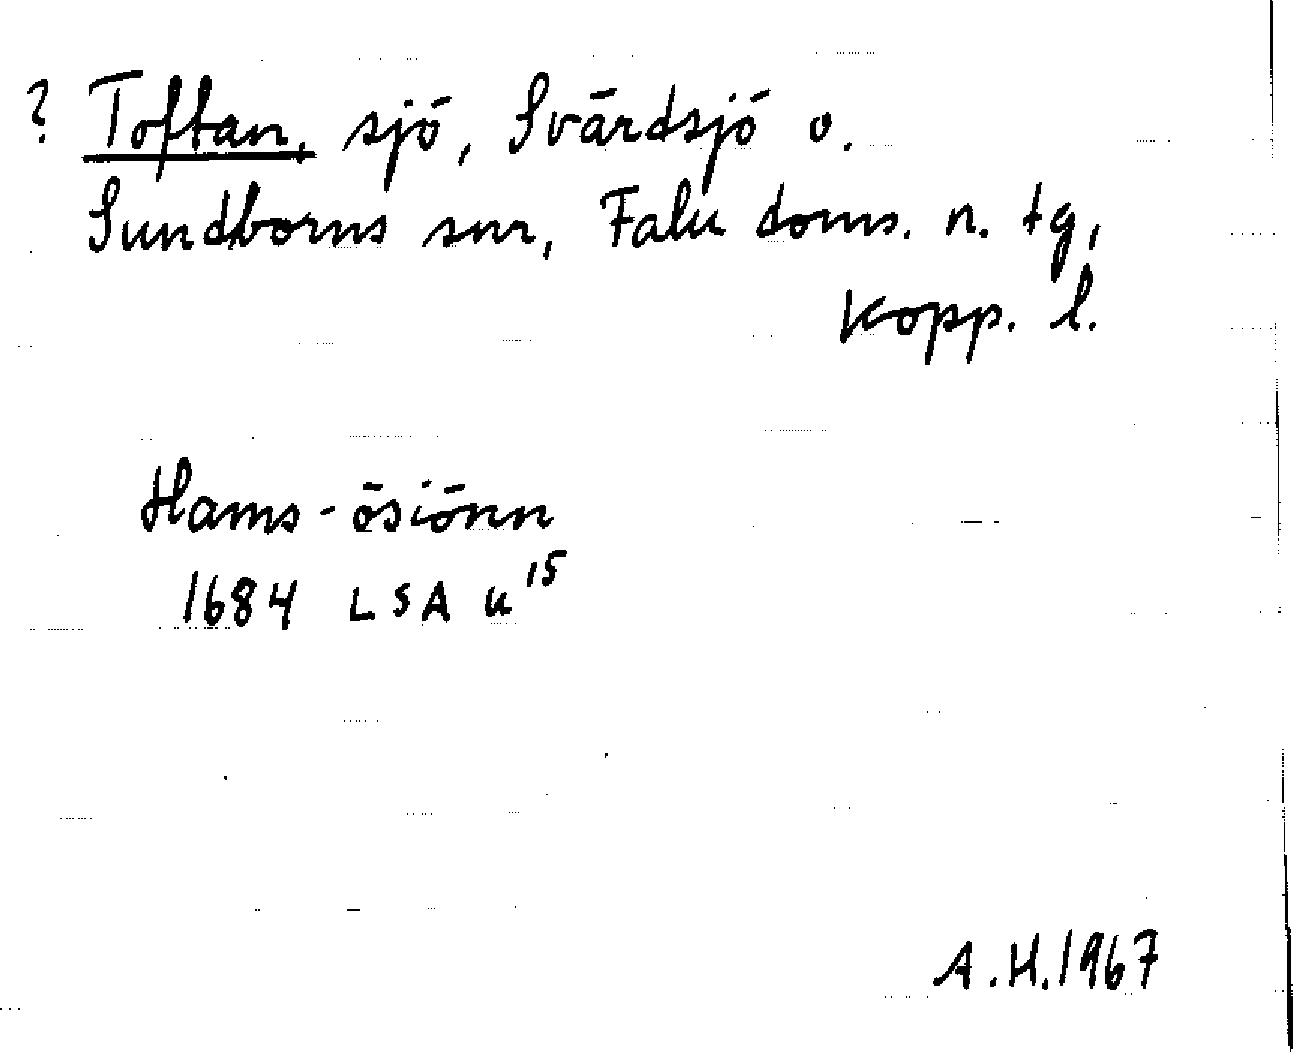 ? Toftan, sjö, Svärdsjö o.
Sundborns snr, Falu doms. n. tg,
Kopp. l.
Hams-ösiönn
1684 LSA u¹⁵
A.H. 1967